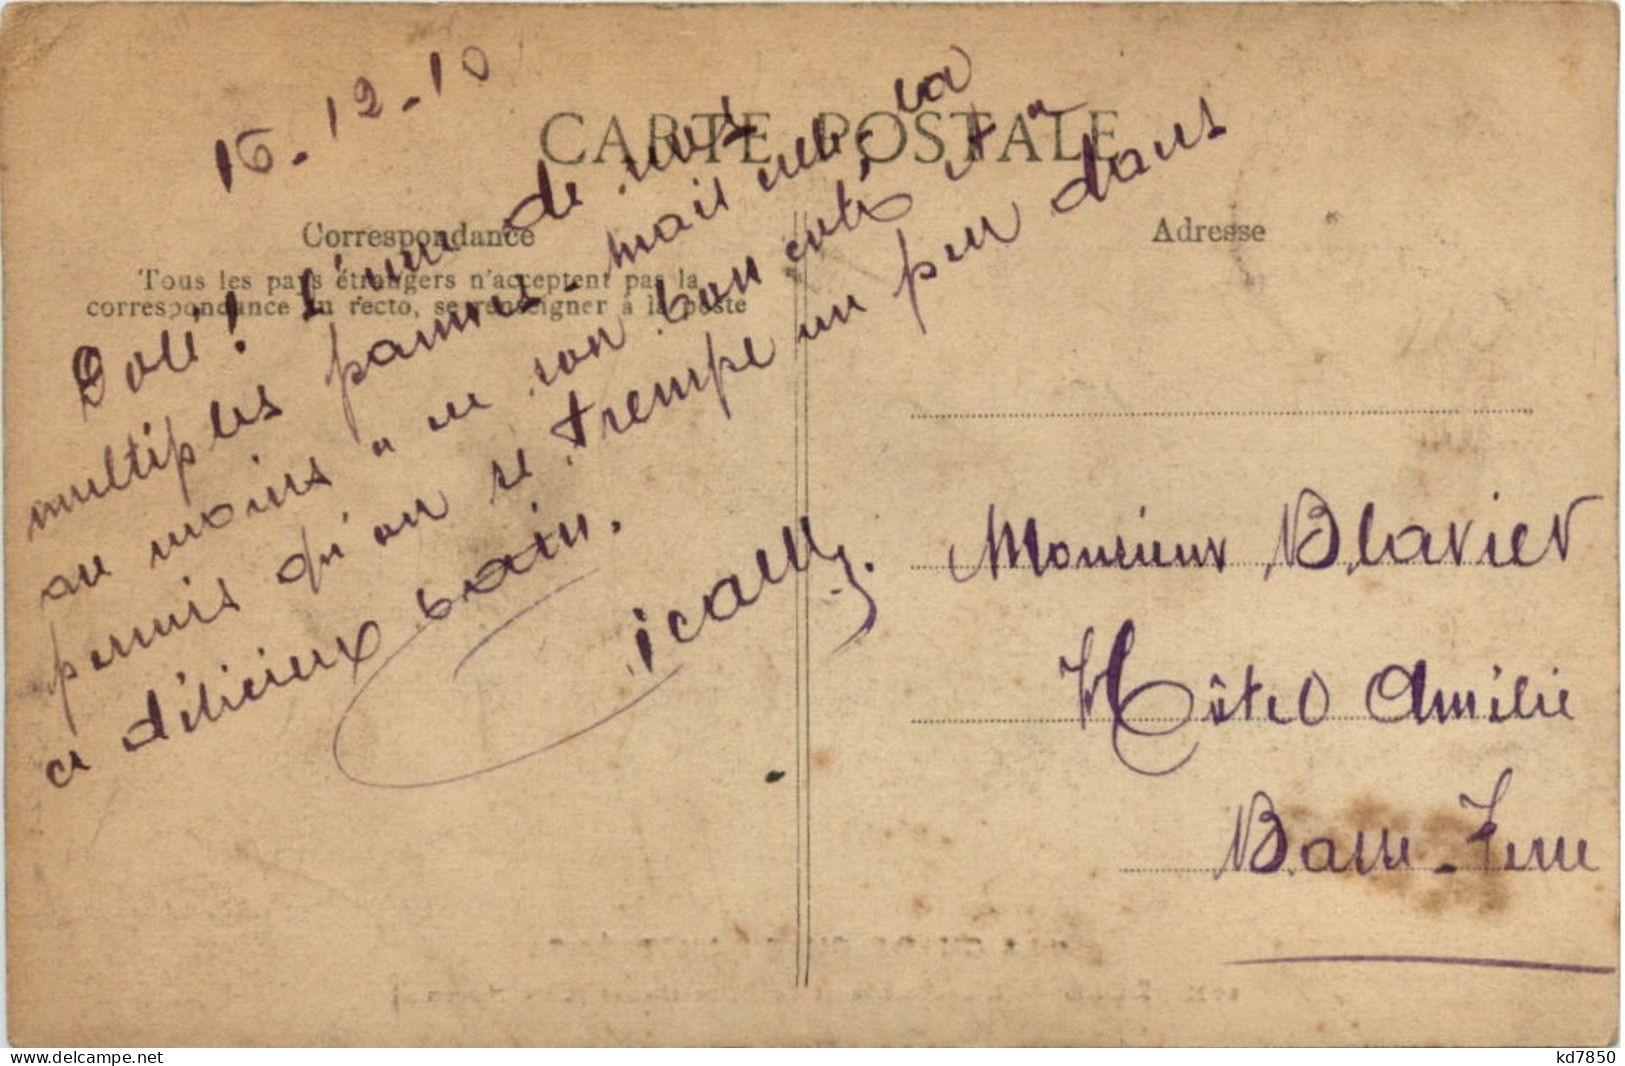 16-12-10
CARTE POSTALE
Correspondance
Tous les pays étrangers n'acceptent pas la
correspondance au recto, se renseigner à la poste
Dolé! l'une de nos
multiples pannes - mais celle-là
au moins "a son bon côté" et a
permis qu'on se trempe un peu dans
ce délicieux bain.
Adresse
Monsieur Blavier
Hôtel Amélie
Basse-Terre
delcampe.net
kd7850